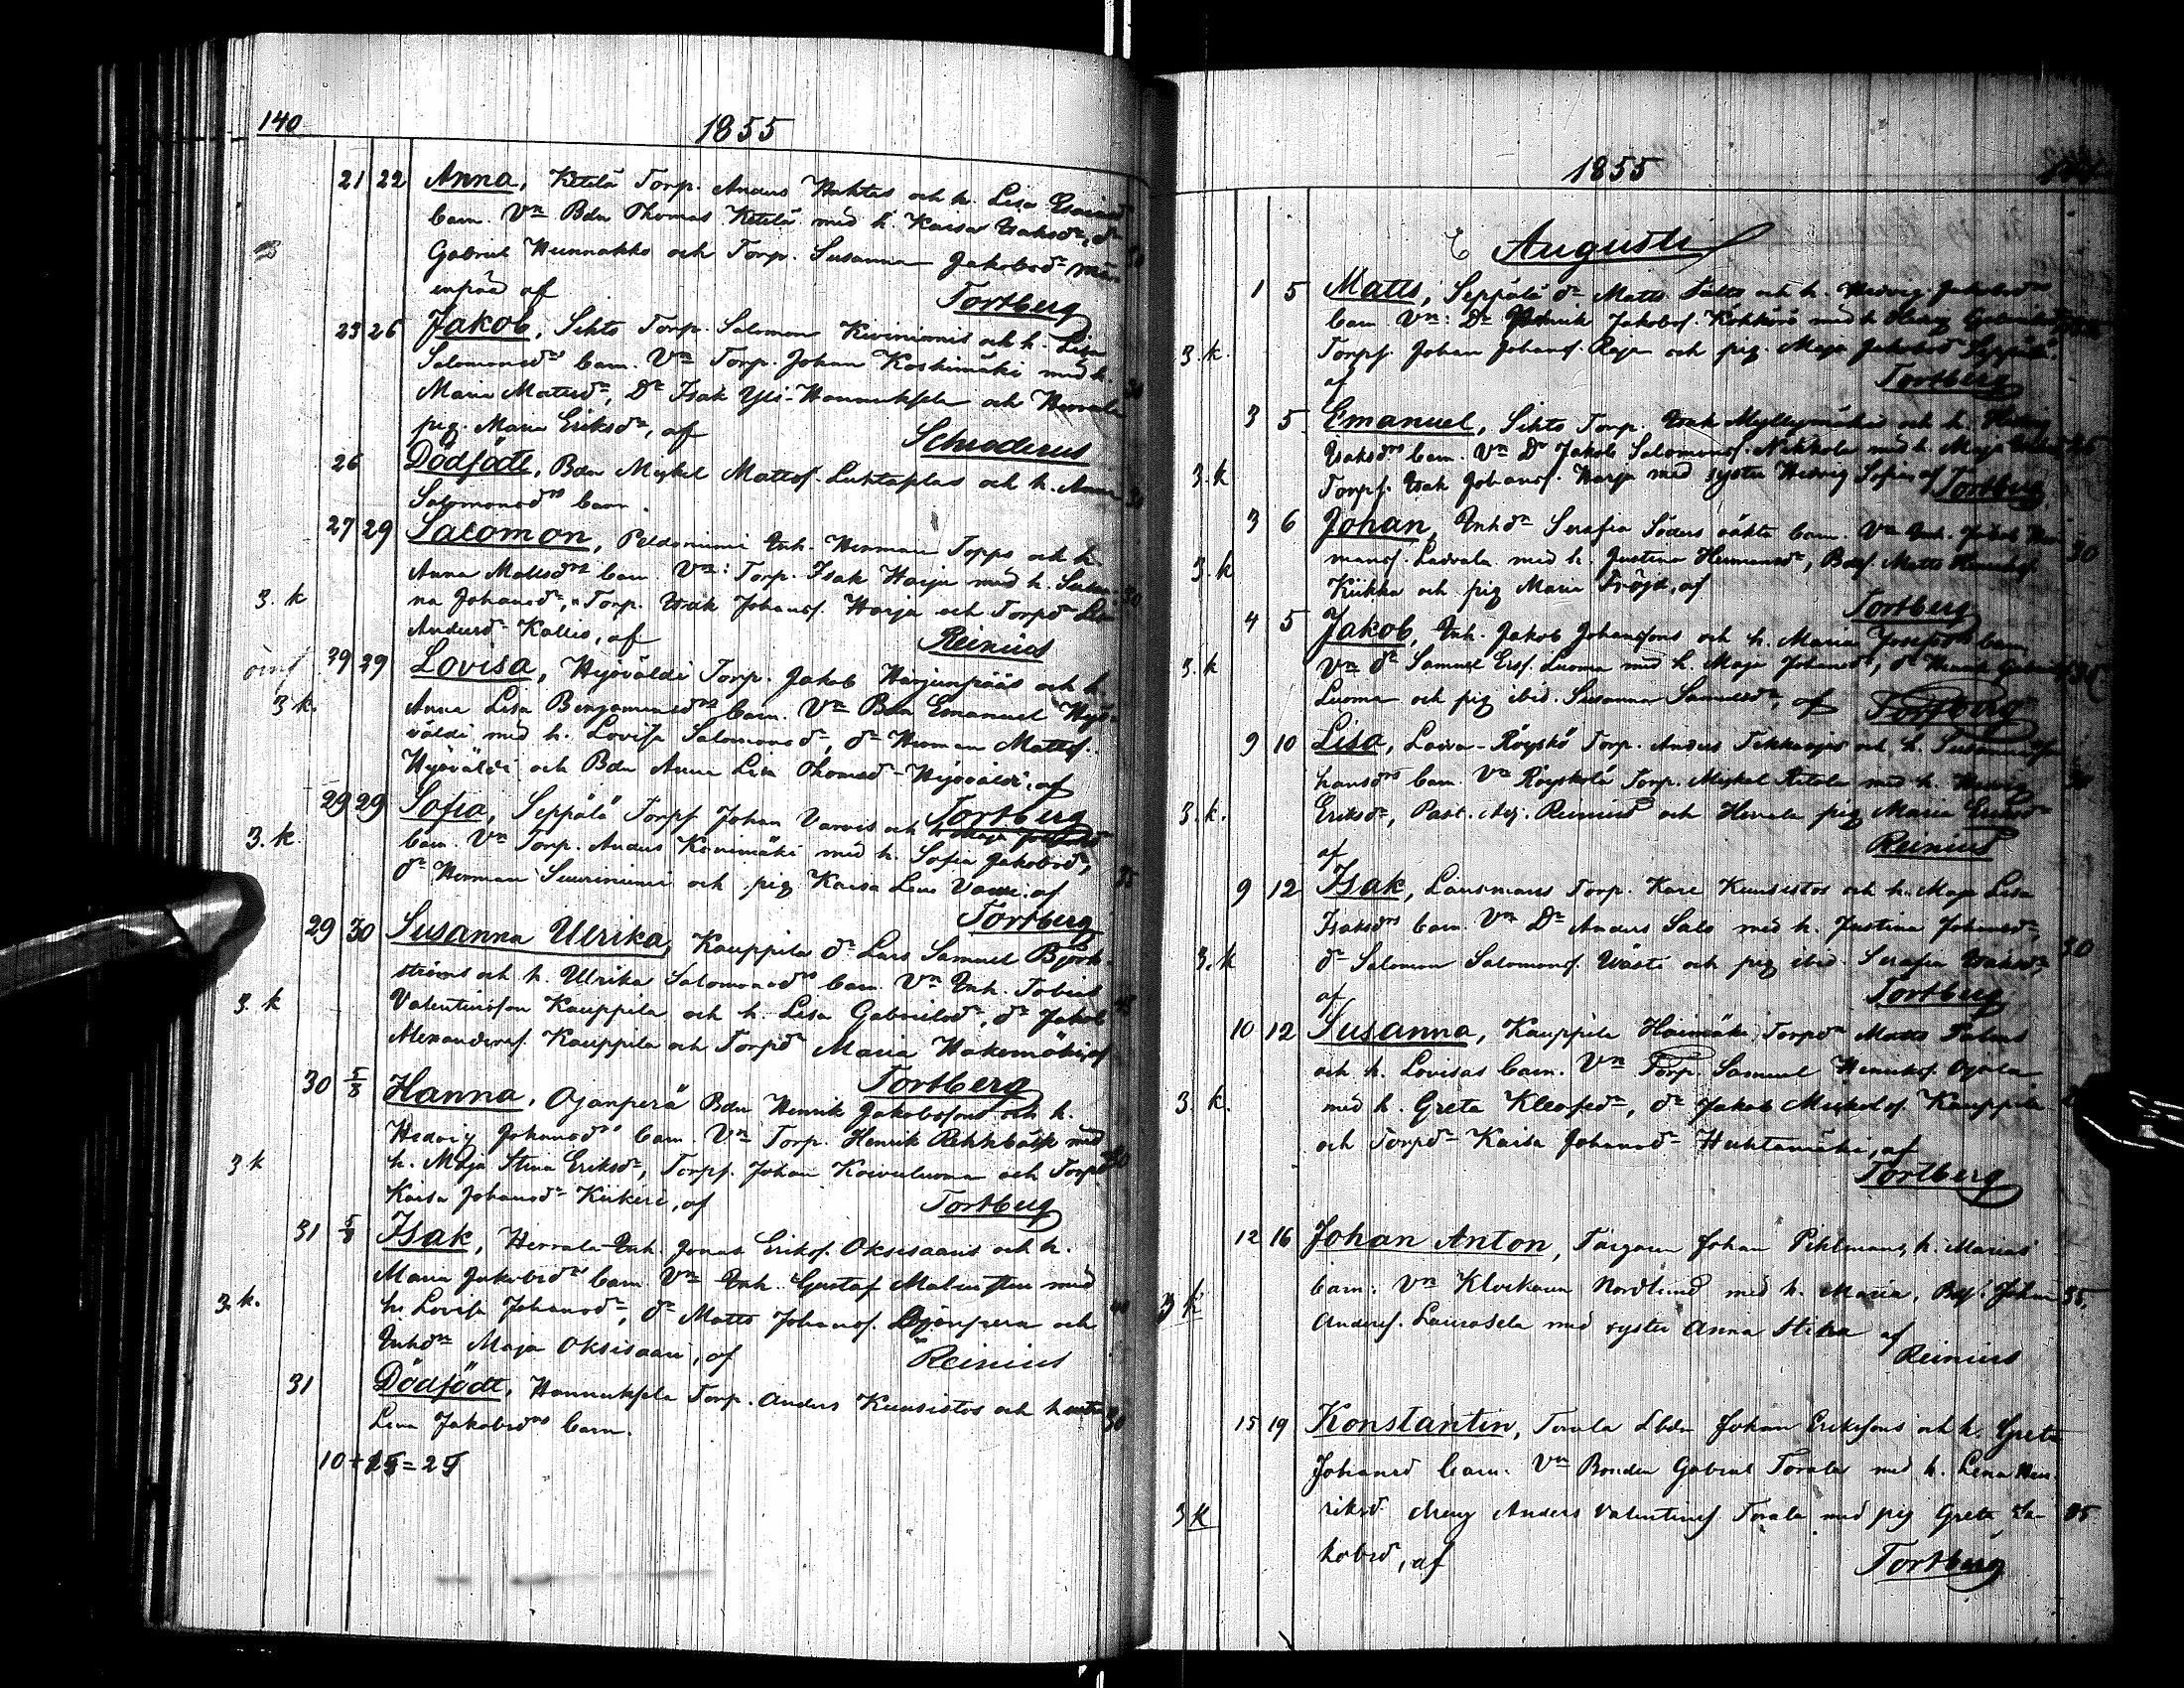 140
1855
21 22 Anna, Ketelä Torp. Anders Huhtas och h. Lisa
barn. Vn Bdn Thomas Ketelä med h. Kaisa Isaksdr, dr
Gabriel Hunnakko och Torp. Susanna Jakobsdr
af Tortberg
23 26 Jakob, Sihto Torp. Salomon Kiviniemis och h. Lisa
Salomonsdrs barn. Vn Torp. Johan Koskimäki med h. 30
Maria Matsdr, Dr Isak Yli-Hannuksela och Herrala
pig. Maria Eriksdr, af Schroderus
26 Dödfödt, Bdn Mickel Mattsf. Luhtaslas och h. Anna
Salomonsdrs barn. 30
27 29 Salomon, Peldoniemi Inh. Herman Topps och h.
Anna Mattsdrs barn. Vn: Torp. Isak Harju med h. Susan-
3. k na Johansdr, Torp. Isak Johansf. Harja och Torpdr 30
Andersdr Kallio, af Reinius
29 29 Lovisa, Hyöväldi Torp. Jakob Harjunpääs och h.
3 k. Anna Lisa Benjaminsdrs barn. Vn Bdn Emanuel Hyö-
väldi med h. Lovisa Salomonsdr, dr Herman Mattsf.
Hyöväldi och Bdn Anna Lisa Thomasdr Hyöväldi, af
Tortberg
29 29 Sofia, Seppälä Torpf Johan Varvis och h. Maja
3. k. barn. Vn Torp. Anders Kivimäki med h. Sofia Jakobsdr,
dr Herman Suuriniemi och pig Kaisa Lena af 35
Tortberg
29 30 Susanna Ulrika, Kauppila dr Lars Samuel Björk-
ströms och h. Ulrika Salomonsdrs barn. Vn Inh. Tobias
3. k Valentinsson Kauppila och h. Lisa Gabrielsdr, dr Jakob
Alexandersf. Kauppila och Torpdr Maria Hakomäki, af
Tortberg
30 5/8 Hanna, Ojanperä Bdn Henrik Jakobssons och h.
Hedvig Johansdrs barn. Vn Torp. Henrik med
3 k h. Maja Stina Eriksdr, Torpf. Johan Koivuluoma och Torpdr 30
Kaisa Johansdr Kiikeri, af Tortberg
31 5/8 Isak, Herrala Inh. Jonas Eriksf. Oksisaaris och h.
Maria Jakobsdrs barn Vn Inh. Gustaf med
3. k. h. Lovisa Johansdr, dr Matts Johansf. Ojanpera och
Inhdr Maja Oksisaari, af Reinius
31 Dödfödt, Hannuksela Torp. Anders Kuusistos och hustru
Lena Jakobsdrs barn. 30
10+15=25
1855
Augusti
1 5 Matts, Seppälä dr Matts Fälts och h. Hedvig Jakobsdrs
barn. Vn: Dr Henrik Jakobsf. Köhkörö med h Hedvig
3. k. Torpf. Johan Johansf. Raja och pig. Maja Seppälä
af Tortberg
3 5 Emanuel, Sihto Torp. Isak Myllymäkis och h. Hedvig
Isaksdrs barn. Vn Dr Jakob Salomonsf. Nikkola med h. Maja
3. k Torpf. Isak Johansf. Harja med syster Hedvig Sofia af Tortberg
3 6 Johan, Inhdr Serafia Söders oäkta barn. Vn Inh. Jakob Her-
3. k mansf. Ladvala med h. Justina Hermansdr, Bdsf. Matts 30
Kiikka och pig Maria Fröjd, af
Tortberg
4 5 Jakob, Inh. Jakob Johanssons och h. Maria Josefsdrs barn
3. k Vn dr Samuel Ersf. Luoma med h. Maja Johansdr, dr
Luoma och pig ibid. Susanna Samuelsdr, af Tortberg
9 10 Lisa, Lawa-Röyskö Torp. Anders och h. Susanna Jo-
hansdrs barn. Vn Röyskölä Torp. Mickel Ketola med h. Hedvig
3. k. Eriksdr, Past. Adj. Reinius och Herrala pig Maria Eriksdr
af Reinius
9 12 Isak, Länsmans Torp. Karl Kuusistos och h. Maja Lisa
Isaksdrs barn. Vn Dr Anders Salo med h. Justina Johansdr, 30
3. k dr Salomon Salomonsf. Wästi och pig ibid. Serafia Isaksdr,
af Tortberg
10 12 Susanna, Kauppila Torpdr Matts Palms
och h. Lovisas barn. Vn Torp. Samuel Henriksf. Ojala
3. k. med h. Greta Kleofedr, dr Jakob Mickelsf. Kauppila
och Torpdr Kaisa Johansdr Huhtamäki, af
Tortberg
12 16 Johan Anton, Färgaren Johan Pihlmans, h. Marias
3 k barn: Vn Klockaren Nordlund med h. Maria, Bdsf. Johan 35.
Andersf. Laurosela med syster Anna Stina af
Reinius
15 19 Konstantin, Torala Lbdn Johan Erikssons och h. Greta
Johansd barn. Vn Bonden Gabriel Torala med h. Lena Hen-
3 k riksd dreng Anders Valentinsf Torala med pig Greta Ja- 35
kobsd, af Tortberg